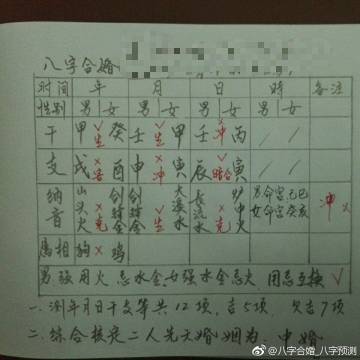 八字合婚
时间 年 月 日 時 备注
性别 男 女 男 女 男 女 男 女
干 甲 生 癸 壬 生 甲 壬 冲 丙 / /
支 戌 害 酉 申 冲 寅 辰 寅 / /
纳音 山头火 克 剑锋金 剑锋金 生 大溪水 长流水 克 炉中火 男命宫己巳 女命宫癸亥 冲
属相 狗 × 鸡
男强用火忌水金女强水金忌火 用忌互换 √
一.测年月日干支等共12项,吉5项 欠吉7项
二.综合核定二人先天婚姻为 中婚
@八字合婚_八字预测